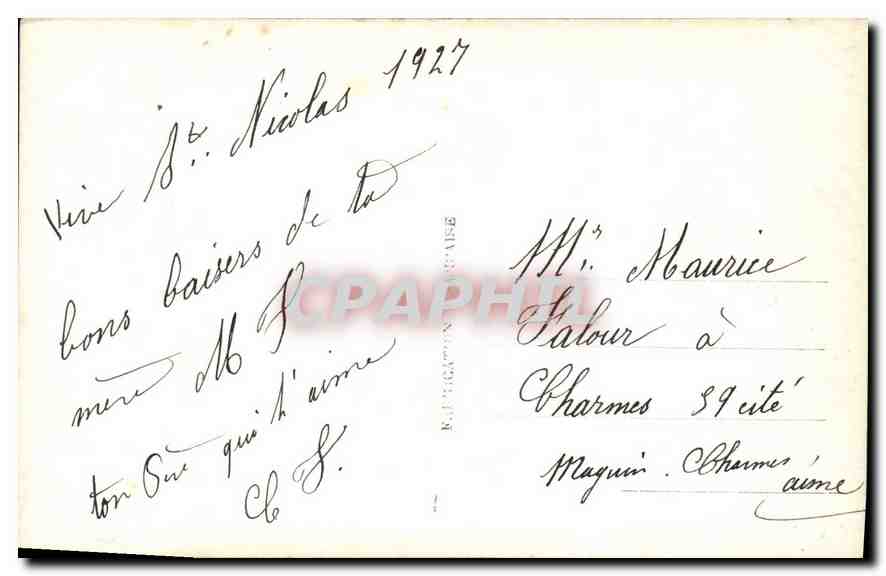 Vive St. Nicolas 1927
bons baisers de ta
mère M F
ton Père qui t'aime
C F.
FABRICATION FRANÇAISE
CPAPHIL
Mr. Maurice
Falour à
Charmes 39 cité
Maguin. Charmes
aisne